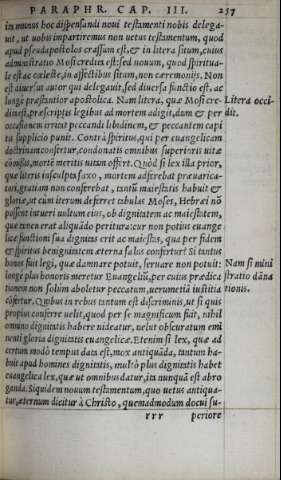 PARAPHR. CAP. III. 257
in munus hoc dispensandi noui testamenti nobis delega-
uit, ut uobis impartiremus non uetus testamentum, quod
apud pseudapostolos crassum est, & in litera situm, cuius
administratio Mosi credita est: sed nouum, quod spiritua-
le est ac cœleste, in affectibus situm, non cæremonijs. Non
est diuersus autor qui delegauit, sed diuersa functio est, ac
longe præstantior apostolica. Nam litera, quæ Mosi cre-
dita est, præscriptis legibus ad mortem adigit, dum & per
occasionem irritat peccandi libidinem, & peccantem capi
tis supplicio punit. Contrà spiritus, qui per euangelicam
doctrinam confertur, condonatis omnibus superioris uitæ
cõmissis, morte meritis uitam offert. Quòd si lex illa prior,
quæ literis insculpta saxo, mortem adferebat præuarica-
tori, gratiam non conferebat, tantũ maiestatis habuit &
gloriæ, ut cum iterum deferret tabulas Moses, Hebræi nõ
possent intueri uultum eius, ob dignitatem ac maiestatem,
quæ tamen erat aliquãdo peritura: cur non potius euange
licæ functioni sua dignitas erit ac maiestas, qua per fidem
& spiritus benignitatem æterna salus confertur? Si tantus
honos fuit legi, quæ damnare potuit, seruare non potuit:
longè plus honoris meretur Euangeliũ, per cuius prædica
tionem non solùm aboletur peccatum, uerumetiã iustitia
cõfertur. Quibus in rebus tantum est discriminis, ut si quis
propius conferre uelit, quod per se magnificum fuit, nihil
omnino dignitatis habere uideatur, uelut obscuratum emi
nenti gloria dignitatis euangelicæ. Etenim si lex, quæ ad
certum modò tempus data est, mox antiquãda, tantum ha-
buit apud homines dignitatis, multò plus dignitatis habet
euangelica lex, quæ ut omnibus datur, ita nunquã est abro
ganda. Siquidem nouum testamentum, quo uetus antiqua-
tur, æternum dicitur à Christo, quemadmodum docui su-
rrr periore
Litera occi-
dit.
Nam si mini
stratio dãna
tionis.